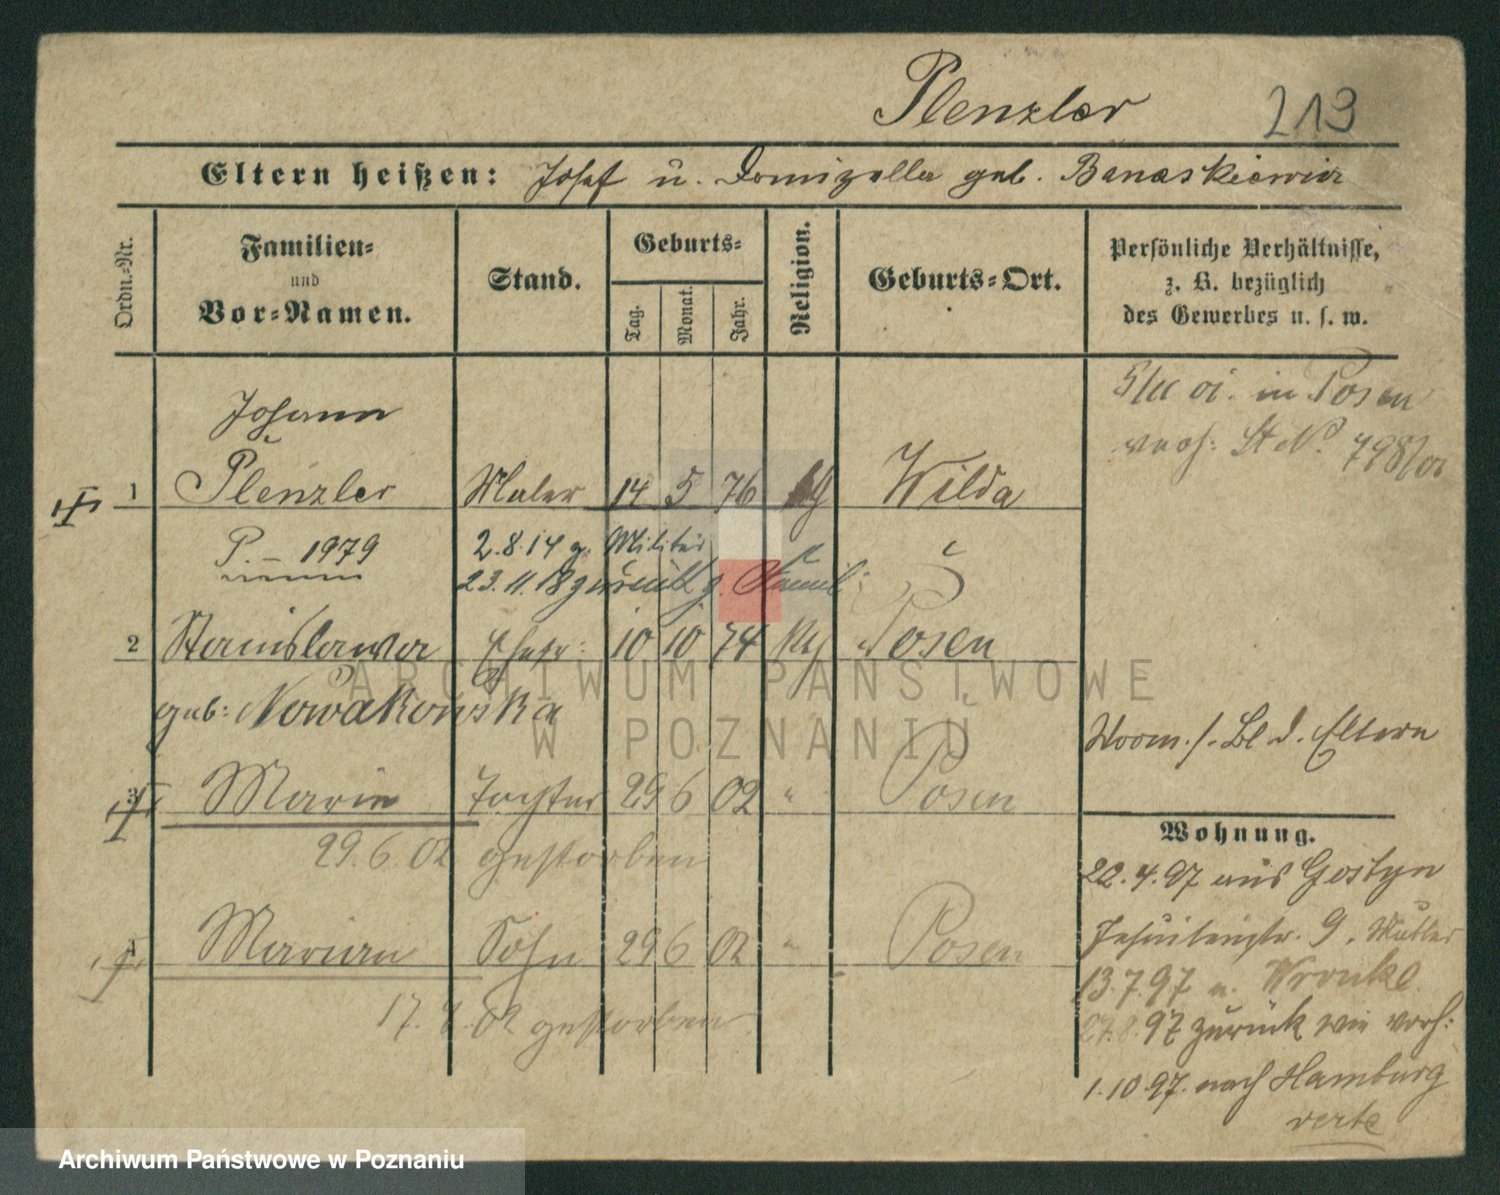 Plenzler 213
Eltern heißen: Josef u. Domizella geb. Banaskiewicz
Ordn.-Nr.
Familien-
und
Vor-Namen.
Stand.
Geburts-
Tag.
Monat.
Jahr.
Religion.
Geburts-Ort.
Persönliche Verhältnisse,
z. B. bezüglich
des Gewerbes u. s. w.
5/11 01. in Posen
verh: St N. 798/01
Johann
1 Plenzler Maler 14 5 76 kg Wilda
P. – 1979
2.8.14 z. Militär
23.11.18 zurück z. Famil:
2 Stanislawa Ehefr: 10 10 74 kg Posen
geb: Nowakowska
Vorm. s. Bl d. Eltern
3 Marie Tochter 29 6 02 " Posen
29.6.02 gestorben
4 Marian Sohn 29 6 02 " Posen
17. 02 gestorben
Wohnung.
22.4.97 aus Gostyn
Jesuitenstr. 9. Mutter
13.7.97 n. Wronke
27.8.97 zurück wie vorh:
1.10.97. nach Hamburg
verte
ARCHIWUM PAŃSTWOWE
W POZNANIU
Archiwum Państwowe w Poznaniu